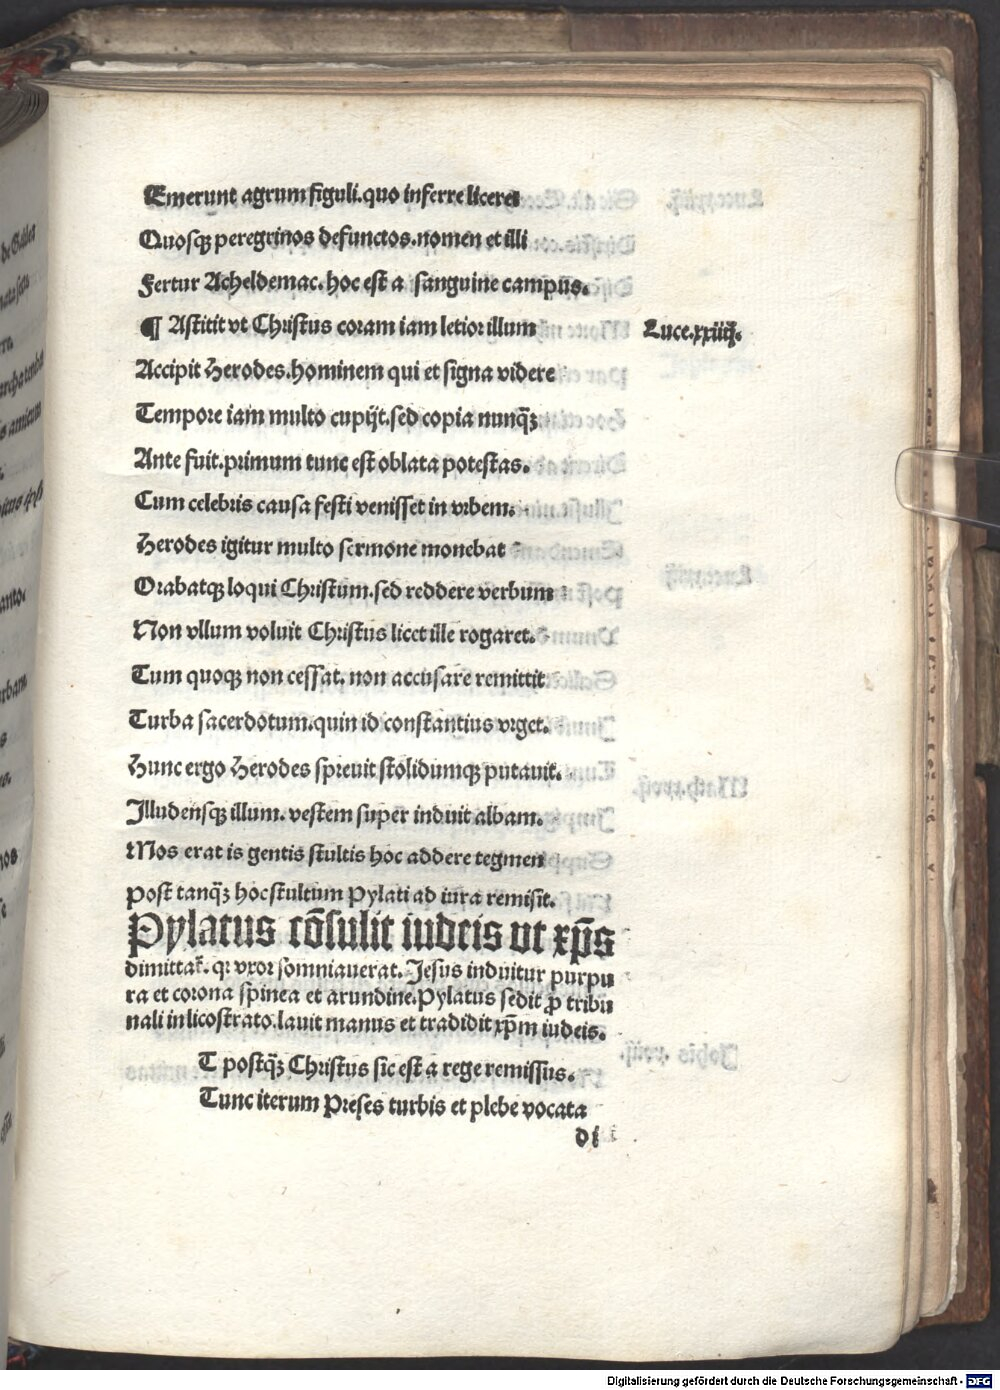 Emerunt agrum figuli.quo inferre liceret
Quosqꝫ peregrinos defunctos.nomen et illi
Fertur Acheldemac.hoc est a sanguine campus.
¶ Astitit vt Christus coram iam letior illum
Luce.xxiiȷ̈.
Accipit Herodes.hominem qui et signa videre
Tempore iam multo cupijt.sed copia nunqꝫ̄
Ante fuit.primum tunc est oblata potestas.
Cum celebris causa festi venisset in vrbem.
Herodes igitur multo sermone monebat
Orabatqꝫ loqui Christum.sed reddere verbum
Non vllum voluit Christus licet ille rogaret.
Tum quoqꝫ non cessat. non accusare remittit
Turba sacerdotum.quin id constantius vrget.
Hunc ergo Herodes spreuit stolidumqꝫ putauit.
Illudensqꝫ illum. vestem super induit albam.
Mos erat is gentis stultis hoc addere tegmen
Post tanqꝫ̄ hoc stultum Pylati ad iura remisit.
Pylatus cōsulit iudeis ut xp̄s
dimittat᷑. qr vxor somniauerat. Jesus induitur purpu
ra et corona spinea et arundine.Pylatus sedit ꝓ tribu
nali in licostrato.lauit manus et tradidit xp̄m iudeis.
T postqꝫ̄ Christus sic est a rege remissus.
Tunc iterum Preses turbis et plebe vocata
di
Digitalisierung gefördert durch die Deutsche Forschungsgemeinschaft - DFG